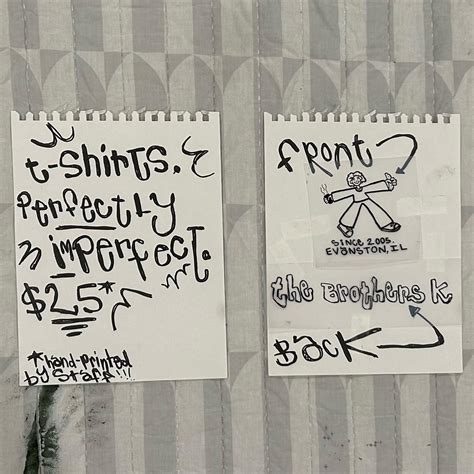 t-shirts.
Perfectly
imperfect.
$25*
*hand-printed
by staff!!!
front
SINCE 2005.
EVANSTON, IL
the Brothers K
Back